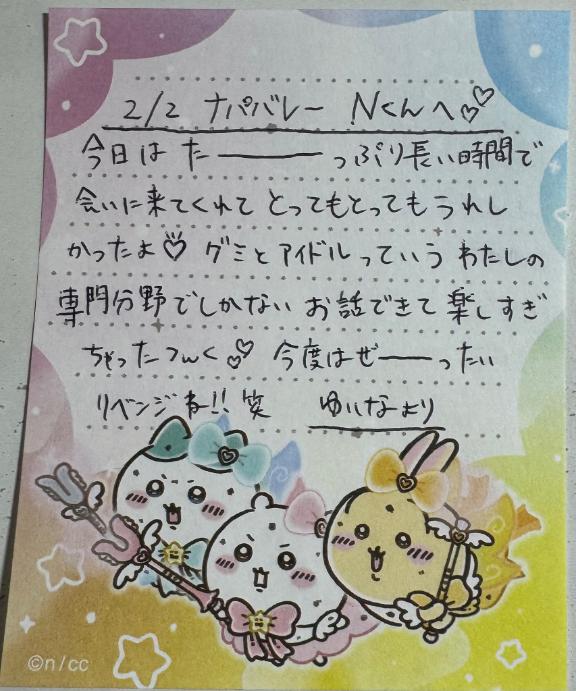 2/2 ナパバレー Nくんへ♡♡
今日は た―――っぷり長い時間で
会いに来てくれて とってもとってもうれし
かったよ♡ グミとアイドルっていう わたしの
専門分野でしかない お話できて 楽しすぎ
ちゃったつんく♡♡ 今度はぜ――ったい
リベンジね!! 笑 ゆいなより
©n/cc